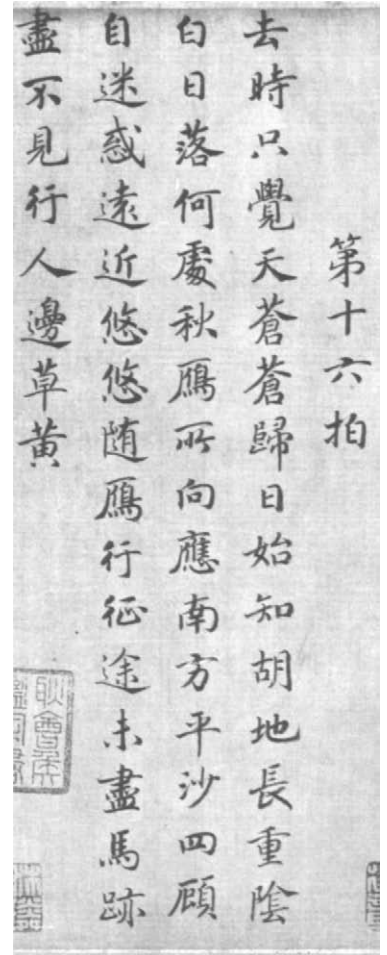 第十六拍
去時只覺天蒼蒼歸日始知胡地長重陰
白日落何處秋鴈所向應南方平沙四顧
自迷惑遠近悠悠随鴈行征途未盡馬跡
盡不見行人邊草黄